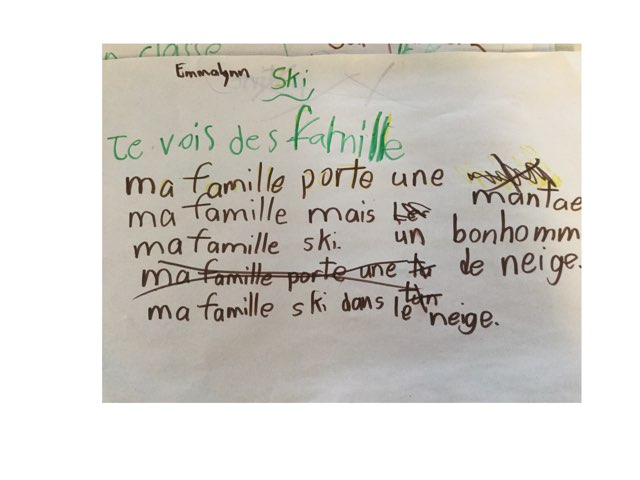 n classe
Emmalynn Ski
Te vois des famille
ma famille porte une
mantae
ma famille mais un bonhomm
de neige.
ma famille ski.
ma famille porte une
ma famille ski dans le neige.